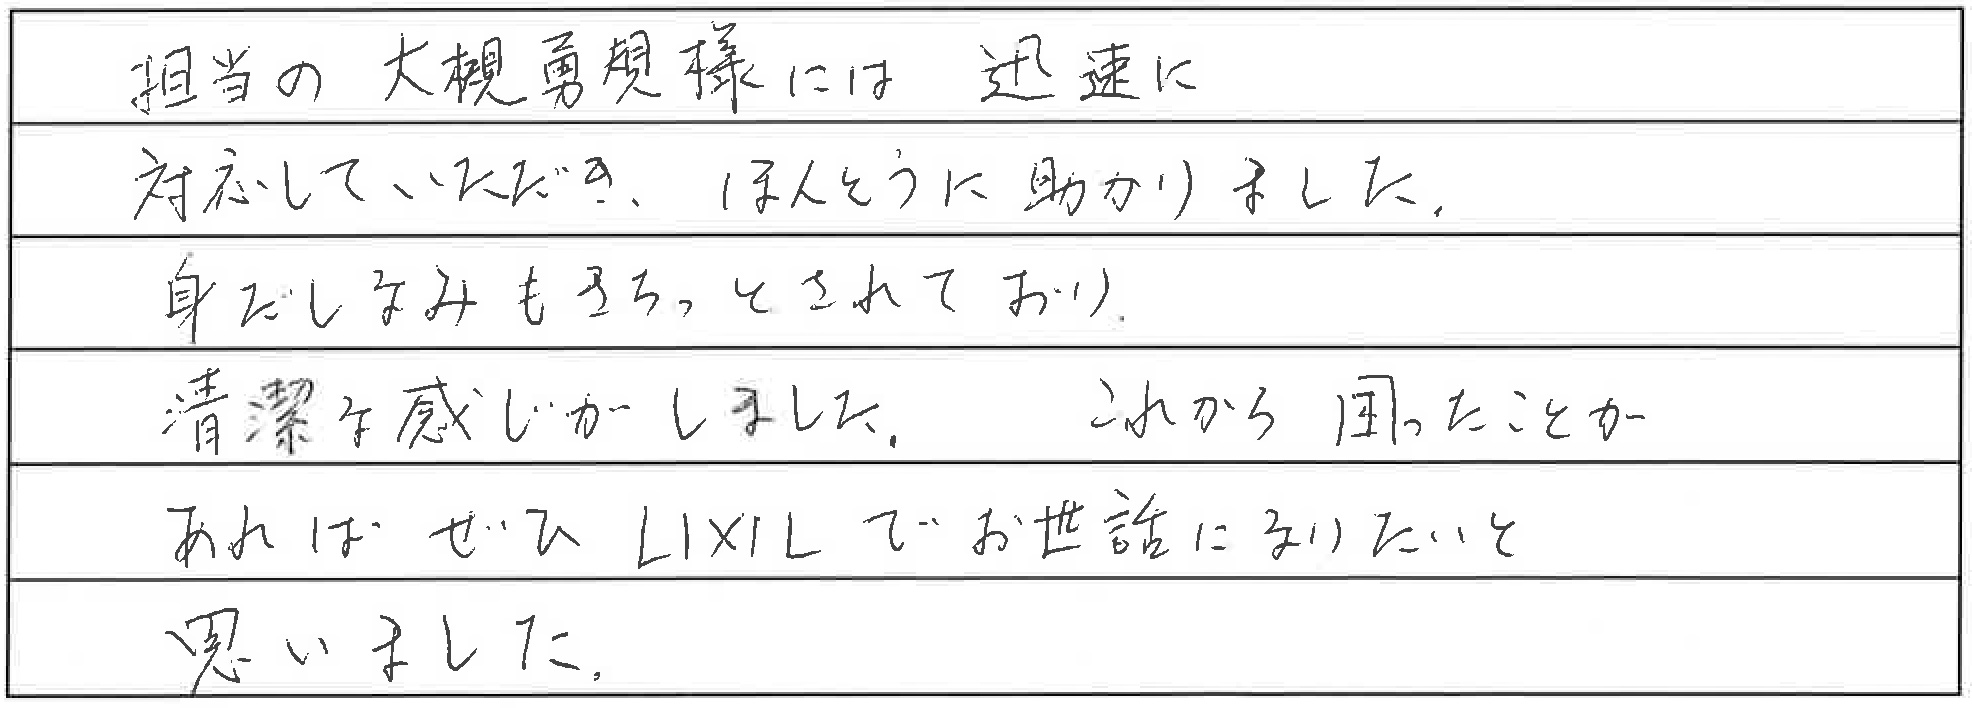 担当の 大槻勇規様には 迅速に
対応していただき、ほんとうに助かりました。
身だしなみもきちっとされており、
清潔な感じがしました。 これから困ったことが
あれば ぜひ LIXILでお世話になりたいと
思いました。